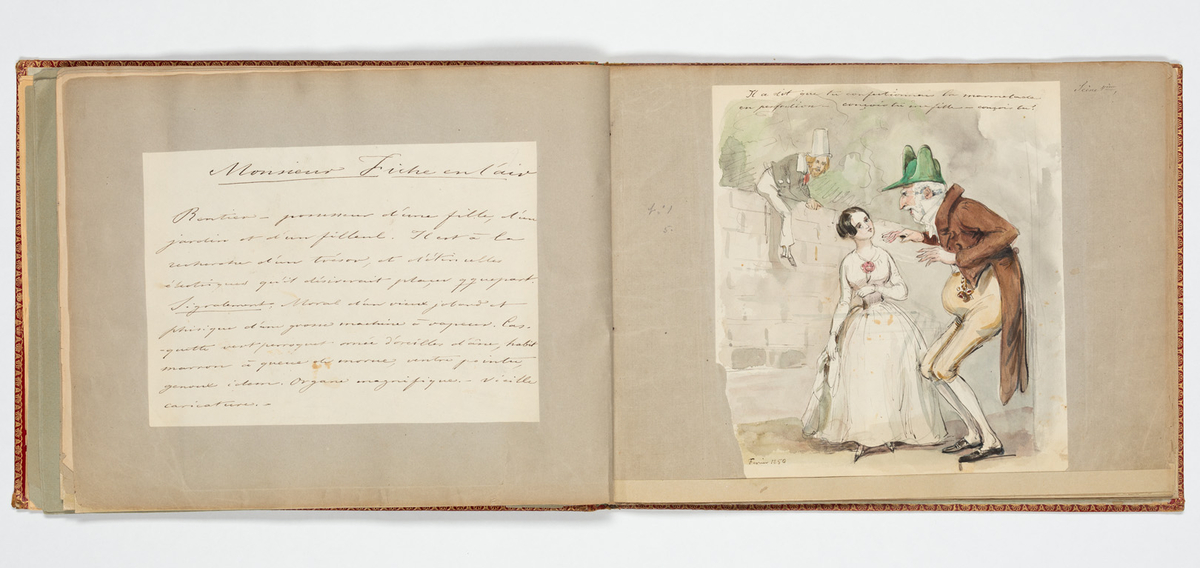 Monsieur Fiche en l'air
Rentier – possesseur d'une fille, d'un
jardin et d'un filleul. Il est à la
recherche d'un trésor, et d'étincelles
électriques qu'il désirerait placer qquepart.
Signalement. Moral d'un vieux jobard et
phisique d'un grosse machine à vapeur. Cas-
quette vert perroquet ornée d'oreilles d'âne, habit
marron à queue de morue, ventre pointu,
genoux idem. Organe magnifique. – Vieille
caricature. –
Il a dit que tu confectionnais la marmelade
en perfection – conçois tu ma fille – conçois tu!
Février 1856